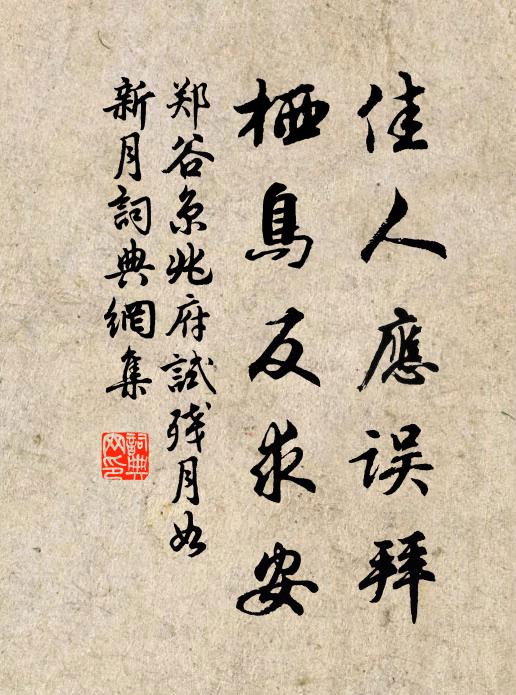 佳人應误拜
栖鳥反求安
郑谷京兆府試残月如
新月詞典網集
詞典网印